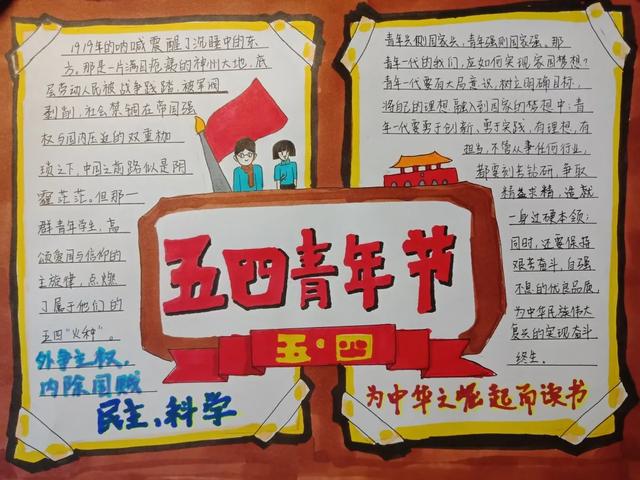 1919年的呐喊震醒了沉睡中的东
方。那是一片满目疮痍的神州大地,底
层劳动人民被战争践踏,被军阀
剥削,社会禁锢在帝国强
权与国内压迫的双重枷
锁之下,中国之前路似是阴
霾茫茫。但那一
群青年学生,高
颂爱国与信仰的
主旋律,点燃
了属于他们的
五四“火种”。
外争主权,
内除国贼
民主、科学
五四青年节
五·四
青年兴则国家兴,青年强则国家强。那
青年一代的我们,在如何实现家国梦想?
青年一代要有大局意识,树立明确目标,
将自己的理想融入到国家的梦想中;青
年一代要勇于创新、勇于实践,有理想,有
担当,不管从事任何行业,
都要刻苦钻研,争取
精益求精,造就
一身过硬本领;
同时,还要保持
艰苦奋斗,自强
不息的优良品质,
为中华民族伟大
复兴的实现奋斗
终生。
为中华之崛起而读书